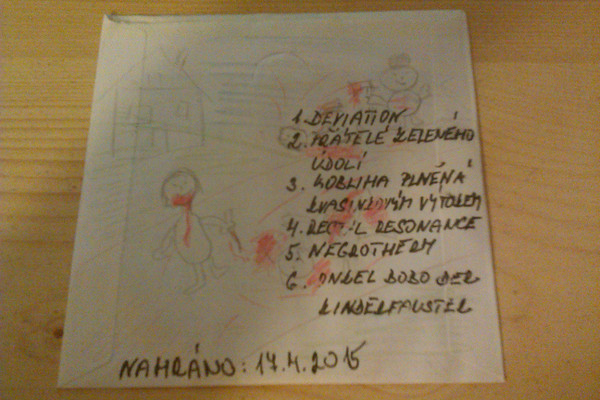 1. DEVIATION
2. PŘÁTELÉ ZELENÉHO
ÚDOLÍ
3. KOBLIHA PLNĚNÁ
KVASINKOVÝM VÝTOKEM
4. RESONANCE
5. NEGROTHERM
6. ONKEL BOBO DER
KINDERFAUSTER
NAHRÁNO: 17.4.2015